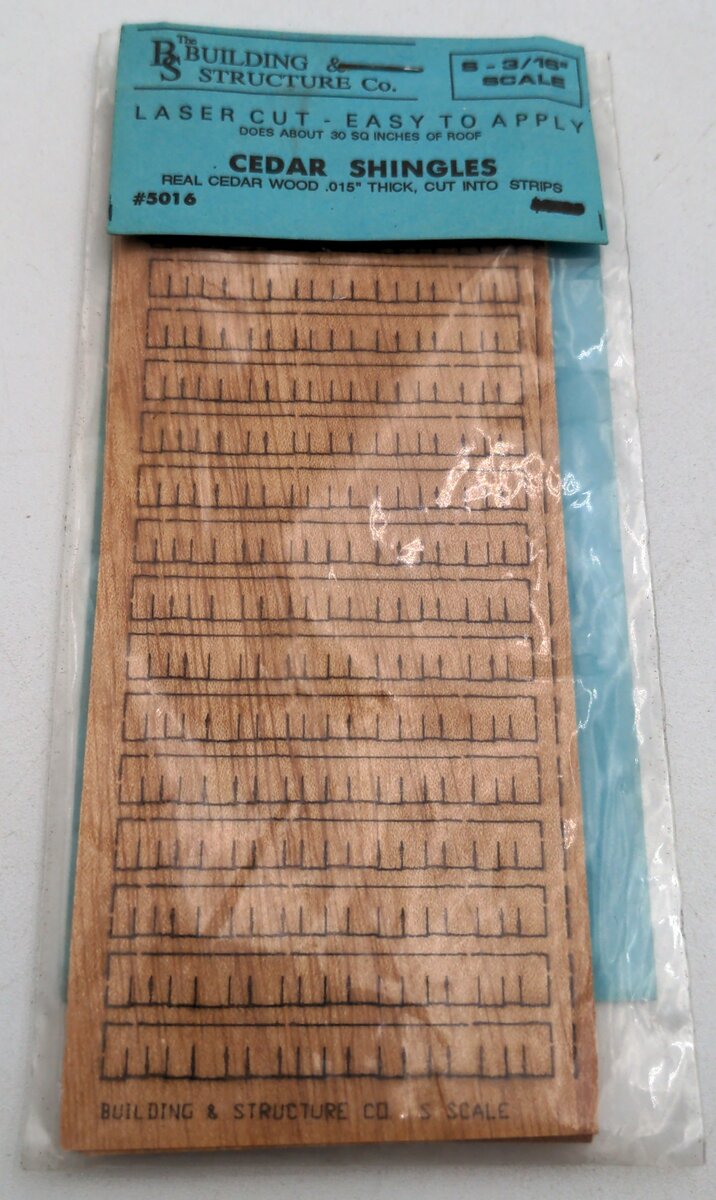 The
BS BUILDING &
STRUCTURE Co.
S - 3/16"
SCALE
LASER CUT - EASY TO APPLY
DOES ABOUT 30 SQ INCHES OF ROOF
CEDAR SHINGLES
REAL CEDAR WOOD .015" THICK, CUT INTO STRIPS
#5016
BUILDING & STRUCTURE CO. S SCALE